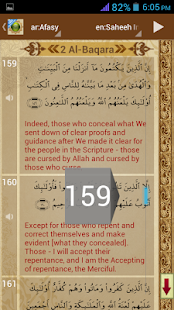 6:05 PM
ar:Afasy
en:Saheeh I
2 Al-Baqara
159
إِنَّ الَّذِينَ يَكْتُمُونَ مَا أَنْزَلْنَا مِنَ الْبَيِّنَاتِ
وَالْهُدَىٰ مِنْ بَعْدِ مَا بَيَّنَّاهُ لِلنَّاسِ فِي الْكِتَابِ
أُولَٰئِكَ يَلْعَنُهُمُ اللَّهُ وَيَلْعَنُهُمُ اللَّاعِنُونَ
Indeed, those who conceal what We
sent down of clear proofs and
guidance after We made it clear for
the people in the Scripture - those
are cursed by Allah and cursed by
those who curse
160
159
Except for those who repent and
correct themselves and make
evident [what they concealed].
Those - I will accept their
repentance, and I am the Accepting
of repentance, the Merciful.
إِنَّ الَّذِينَ كَفَرُوا وَمَاتُوا وَهُمْ كُفَّارٌ أُولَٰئِكَ